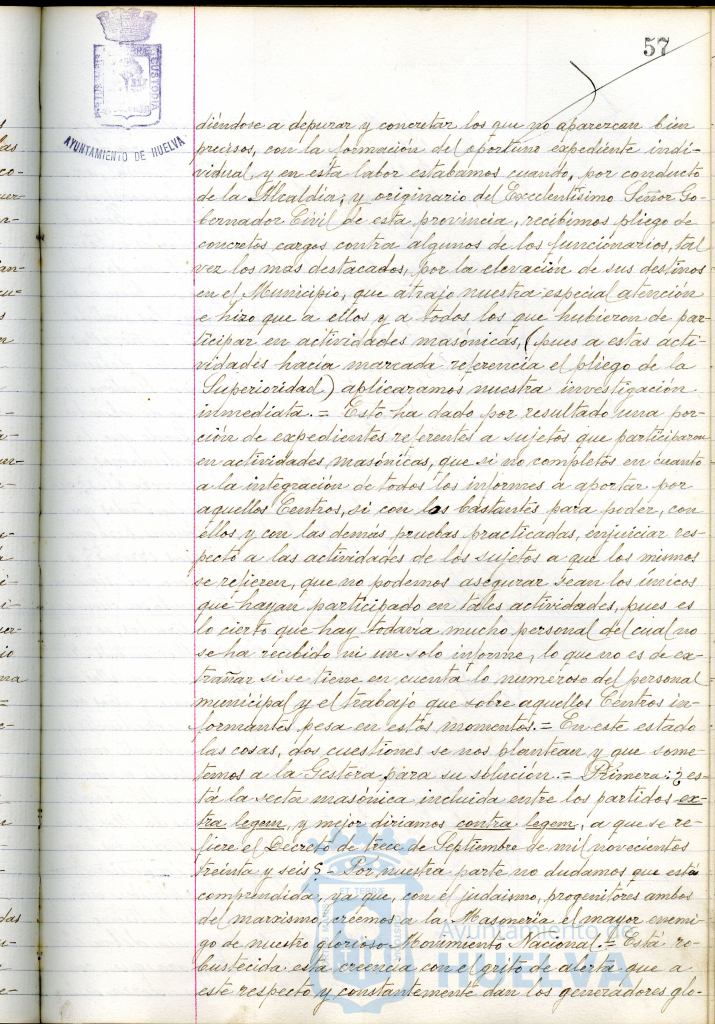 57
AYUNTAMIENTO DE HUELVA
diéndose a depurar y concretar los que no aparezcan bien
precisos, con la formación del oportuno expediente indi-
vidual, y en esta labor estabamos cuando, por conducto
de la Alcaldía, y originario del Excelentísimo Señor Go-
bernador Civil de esta provincia, recibimos pliego de
concretos cargos contra algunos de los funcionarios, tal
vez los mas destacados, por la elevación de sus destinos
en el Municipio, que atrajo nuestra especial atención
e hizo que a ellos y a todos los que hubieron de par-
ticipar en actividades masónicas, (pues a estas acti-
vidades hacía marcada referencia el pliego de la
Superioridad) aplicaramos nuestra investigación
inmediata.= Esto ha dado por resultado una por-
ción de expedientes referentes a sujetos que participaron
en actividades masónicas, que si no completos en cuanto
a la integración de todos los informes a aportar por
aquellos Centros, si con los bastantes para poder, con
ellos y con las demás pruebas practicadas, enjuiciar res-
pecto a las actividades de los sujetos a que los mismos
se refieren, que no podemos asegurar sean los unicos
que hayan participado en tales actividades, pues es
lo cierto que hay todavía mucho personal del cual no
se ha recibido ni un solo informe, lo que no es de ex-
trañar si se tiene en cuenta lo numeroso del personal
municipal y el trabajo que sobre aquellos Centros in-
formantes pesa en estos momentos.= En este estado
las cosas, dos cuestiones se nos plantean y que some-
temos a la Gestora para su solución.= Primera: ¿es-
tá la secta masónica incluida entre los partidos ex-
tra legem, y mejor diriamos contra legem, a que se re-
fiere el Decreto de trece de Septiembre de mil novecientos
treinta y seis?- Por nuestra parte no dudamos que está
comprendida, ya que, con el judaismo, progenitores ambos
del marxismo, creemos a la Masonería el mayor enemi-
go de nuestro glorioso Movimiento Nacional.= Está ro-
bustecida esta creencia con el grito de alerta que a
este respecto y constantemente dan los generadores glo-
Ayuntamiento de
HUELVA